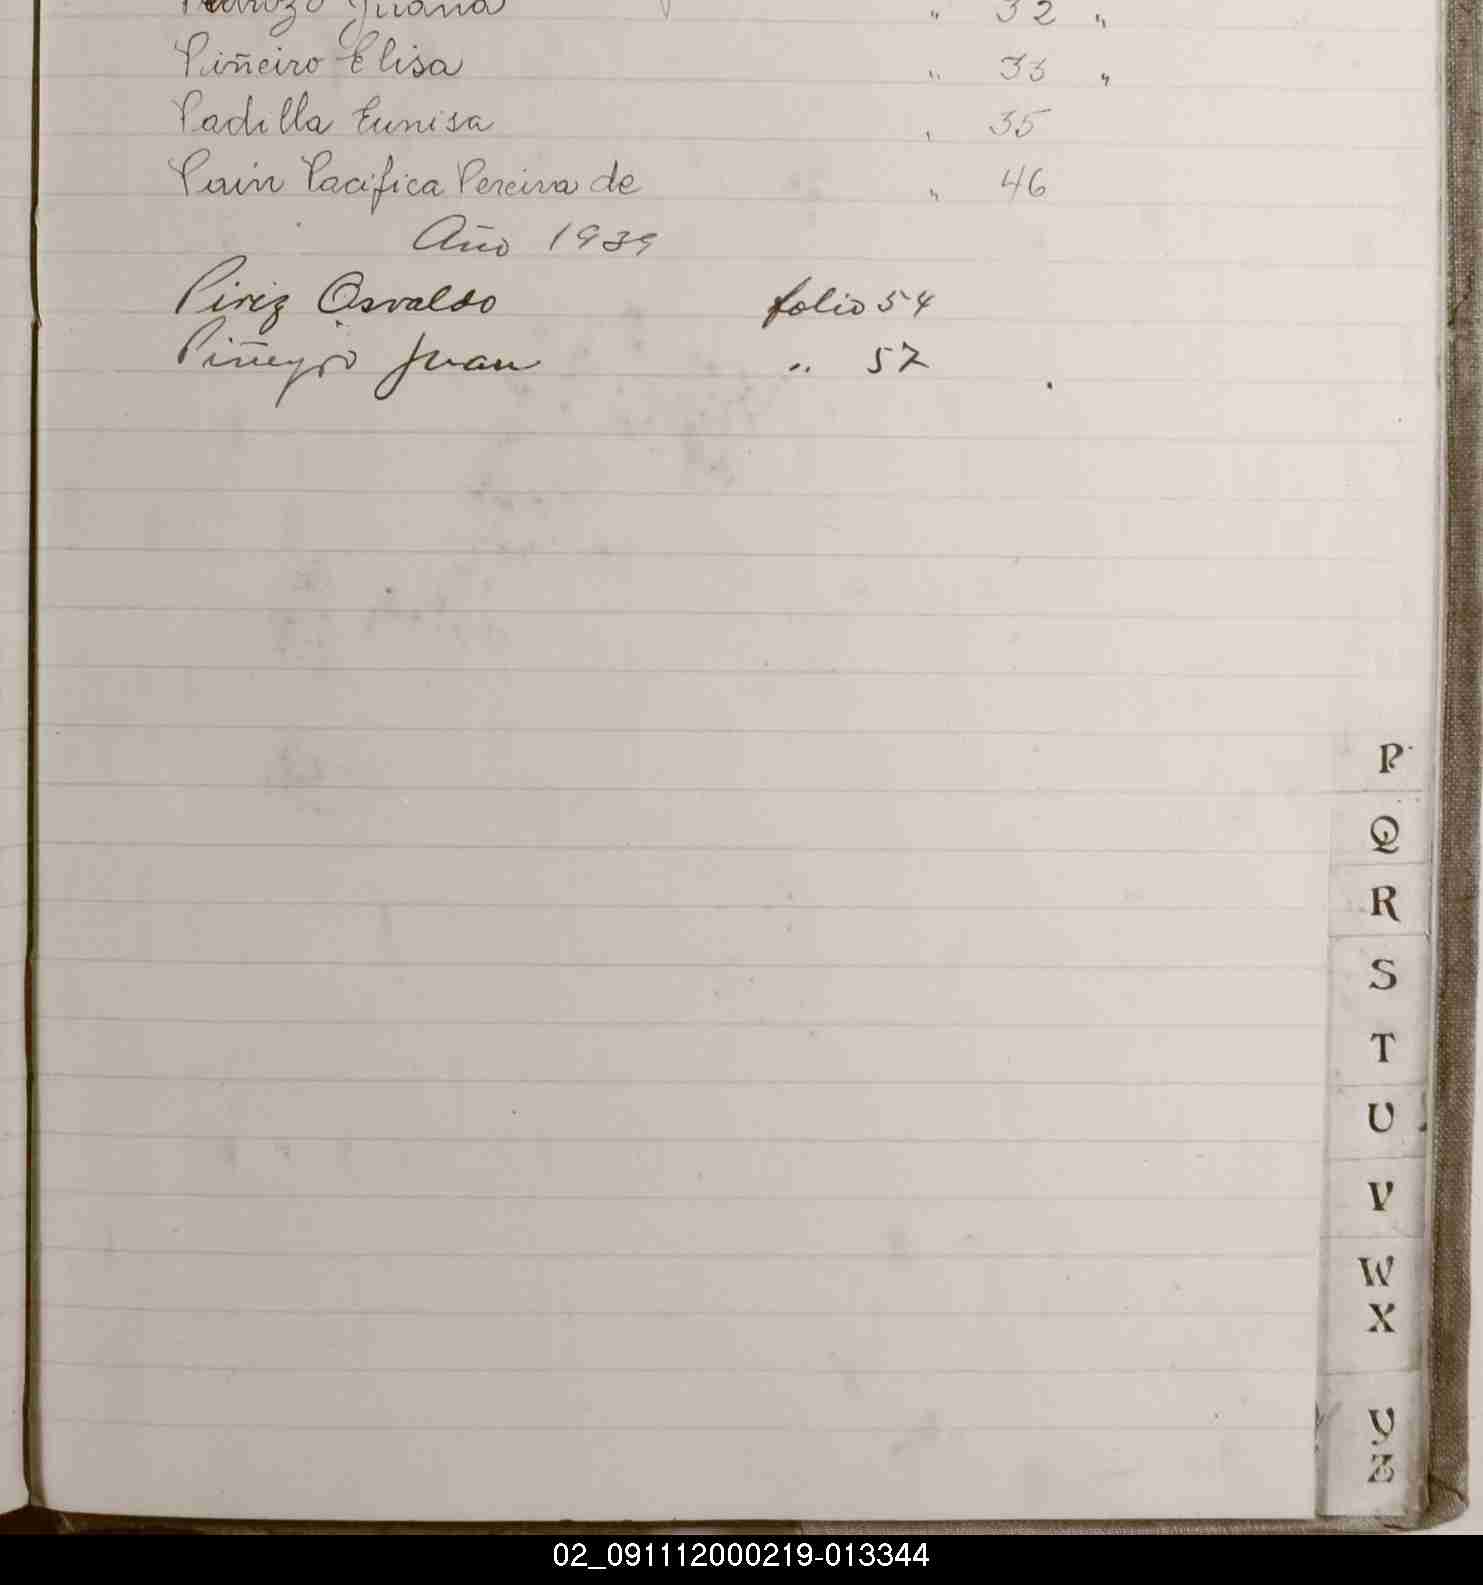 Juana " 32 "
Piñeiro Elisa " 33 "
Padilla Eunisa " 35
Pacifica Pereira de " 46
Año 1939
Piriz Osvaldo folio 54
Piñeyro Juan " 57
P
Q
R
S
T
U
V
W
X
Y
Z
02_091112000219-013344